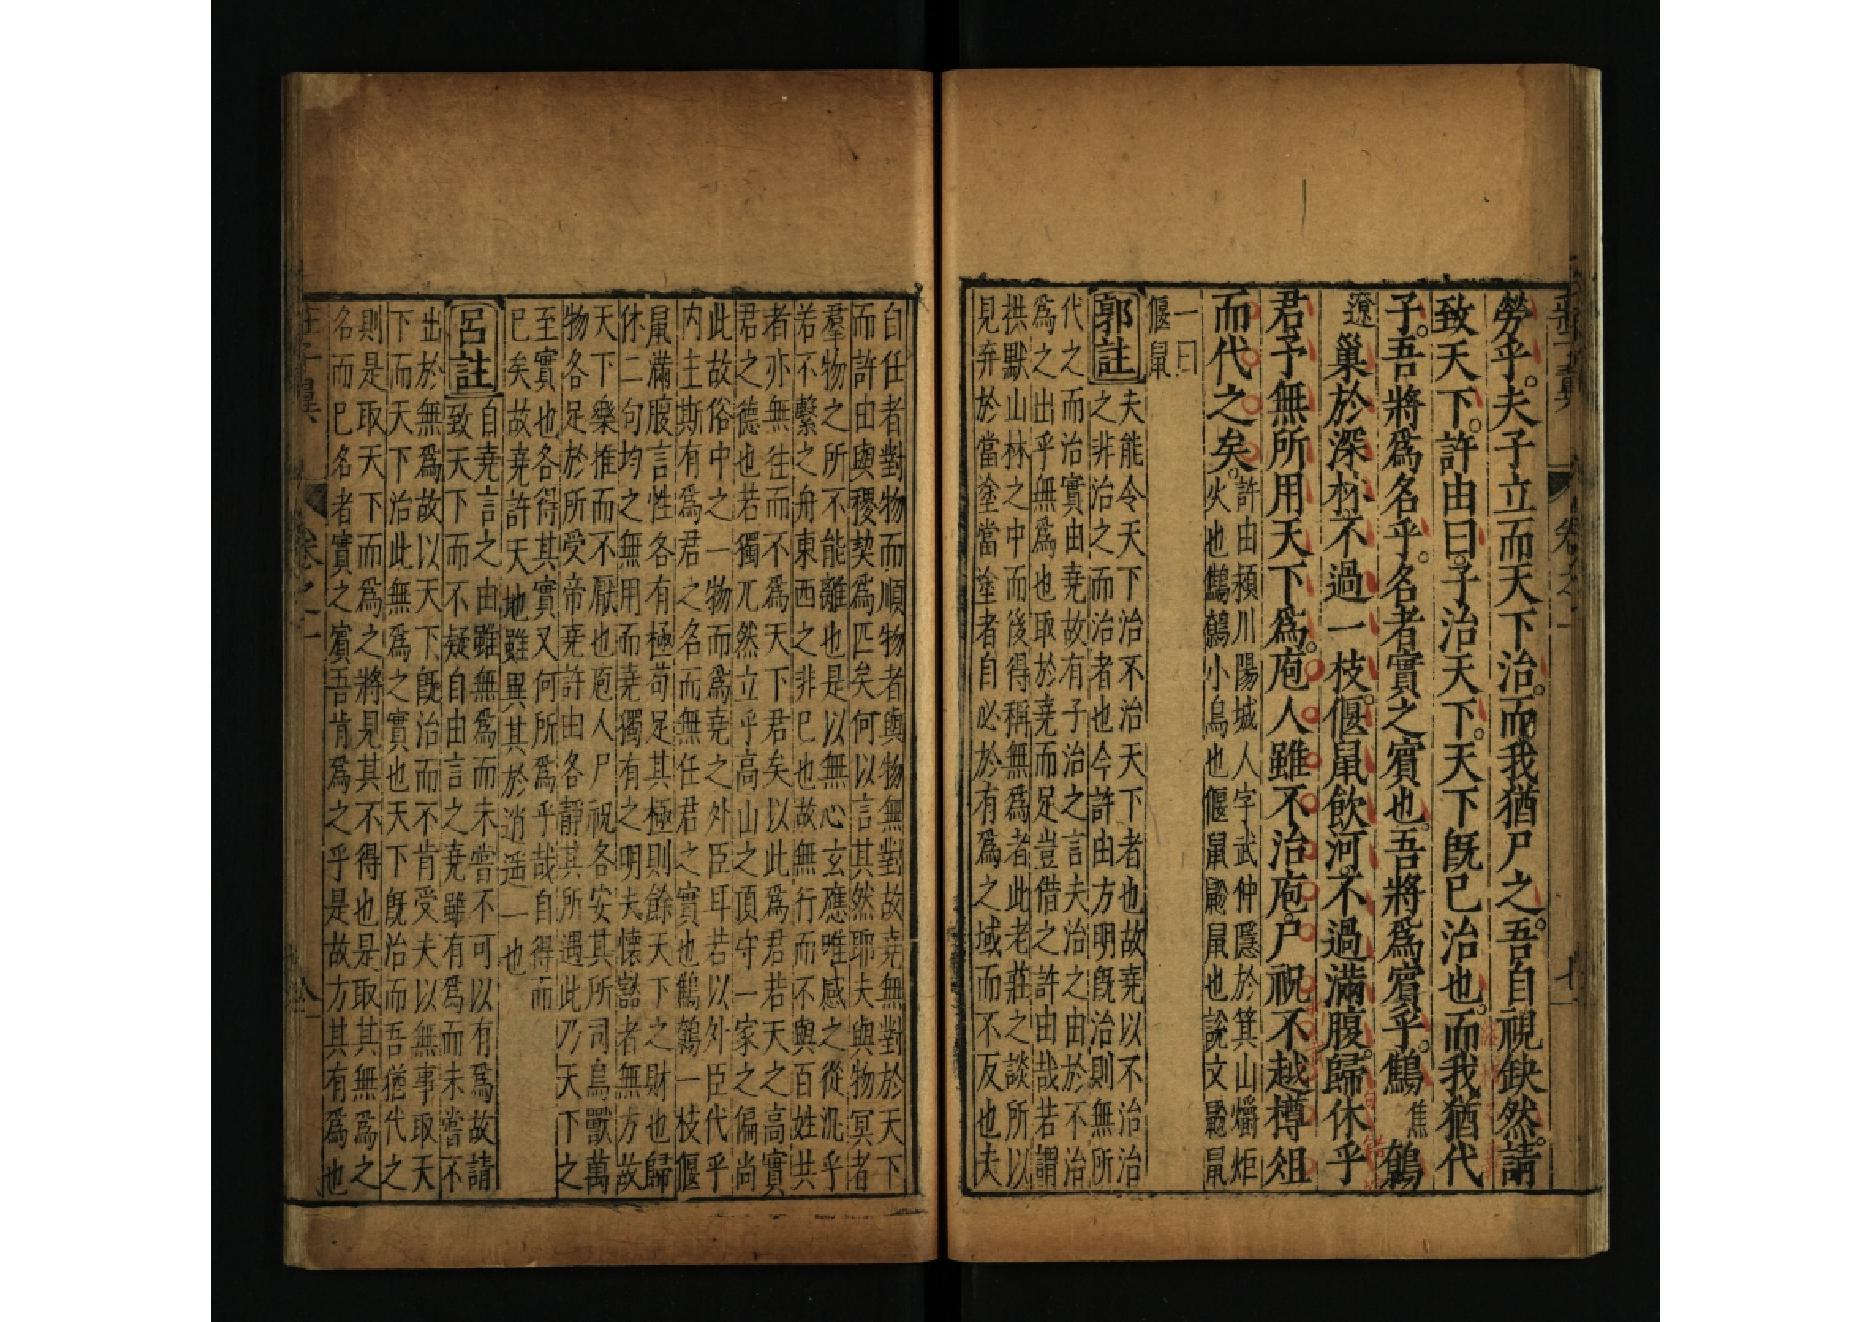 莊子翼 卷之一 七
勞乎。夫子立而天下治。而我猶尸之。吾自視缺然。請
致天下。許由曰。子治天下。天下既已治也。而我猶代
子。吾將爲名乎。名者實之賓也。吾將爲賓乎。鷦焦鷯
遼巢於深林。不過一枝。偃鼠飲河。不過滿腹。歸休乎
君予無所用天下爲。庖人雖不治庖。尸祝不越樽俎
而代之矣。許由潁川陽城人字武仲隱於箕山爝炬
火也鷦鷯小鳥也偃鼠鼷鼠也說文鼷鼠
一曰
偃鼠
郭註 夫能令天下治不治天下者也故堯以不治治
之非治之而治者也今許由方明既治則無所
代之而治實由堯故有子治之言夫治之由於不治
爲之出乎無爲也取於堯而足豈借之許由哉若謂
拱默山林之中而後得稱無爲者此老莊之談所以
見弃於當塗當塗者自必於有爲之域而不反也夫
自任者對物而順物者與物無對故堯無對於天下
而許由與稷契爲匹矣何以言其然耶夫與物冥者
羣物之所不能離也是以無心玄應唯感之從汎乎
若不繫之舟東西之非已也故無行而不與百姓共
者亦無往而不爲天下君矣以此爲君若天之高實
君之德也若獨兀然立乎高山之頂守一家之偏尚
此故俗中之一物而爲堯之外臣耳若以外臣代乎
内主斯有爲君之名而無任君之實也鷦鷯一枝偃
鼠滿腹言性各有極苟足其極則餘天下之財也歸
休二句均之無用而堯獨有之明夫懷豁者無方故
天下樂推而不厭也庖人尸祝各安其所司鳥獸萬
物各足於所受帝堯許由各靜其所遇此乃天下之
至實也各得其實又何所爲乎哉自得而
已矣故堯許天地雖異其於逍遥一也
呂註 自堯言之由雖無爲而未嘗不可以有爲故請
致天下而不疑自由言之堯雖有爲而未嘗不
出於無爲故以天下既治而不肯受夫以無事取天
下而天下治此無爲之實也天下既治而吾猶代之
則是取天下而爲之將見其不得也是取其無爲之
名而已名者實之賓吾肯爲之乎是故方其有爲也
莊子翼 卷之一 八